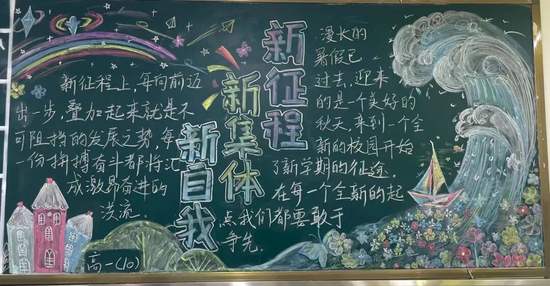 新征程上，每向前迈
出一步，叠加起来就是不
可阻挡的发展之势，每
一份拼搏奋斗都将汇
成激昂奋进的
洪流
新征程
新集体
新自我
漫长的
暑假已
过去，迎来
的是一个美好的
秋天，来到一个全
新的校园开始
了新学期的征途。
在每一个全新的起
点我们都要敢于
争先
高一(10)